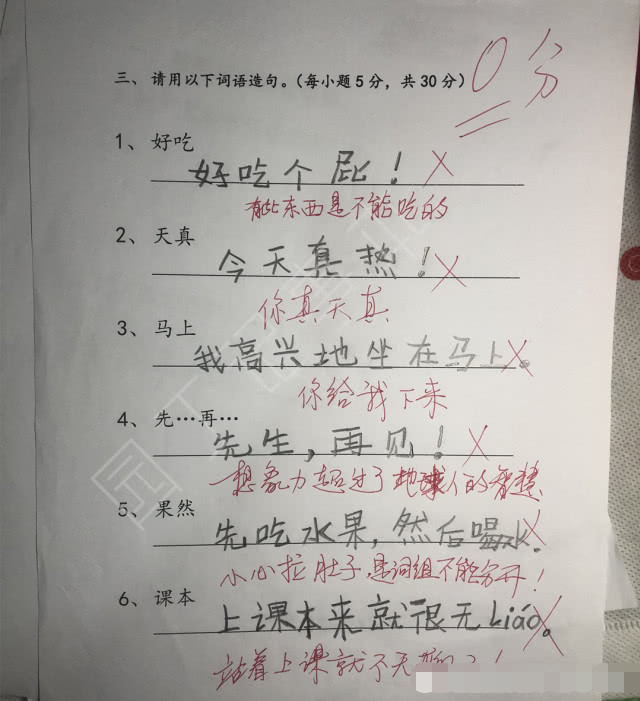 三、请用以下词语造句。(每小题5分，共30分)
0分
1、好吃
好吃个屁！
有些东西是不能吃的
2、天真
今天真热！
你真天真
3、马上
我高兴地坐在马上。
你给我下来
4、先…再…
先生，再见！
想象力超过了地球人的智慧
5、果然
先吃水果，然后喝水.
小心拉肚子，是词组不能分开！
6、课本
上课本来就很无Liáo。
站着上课就不无聊了！